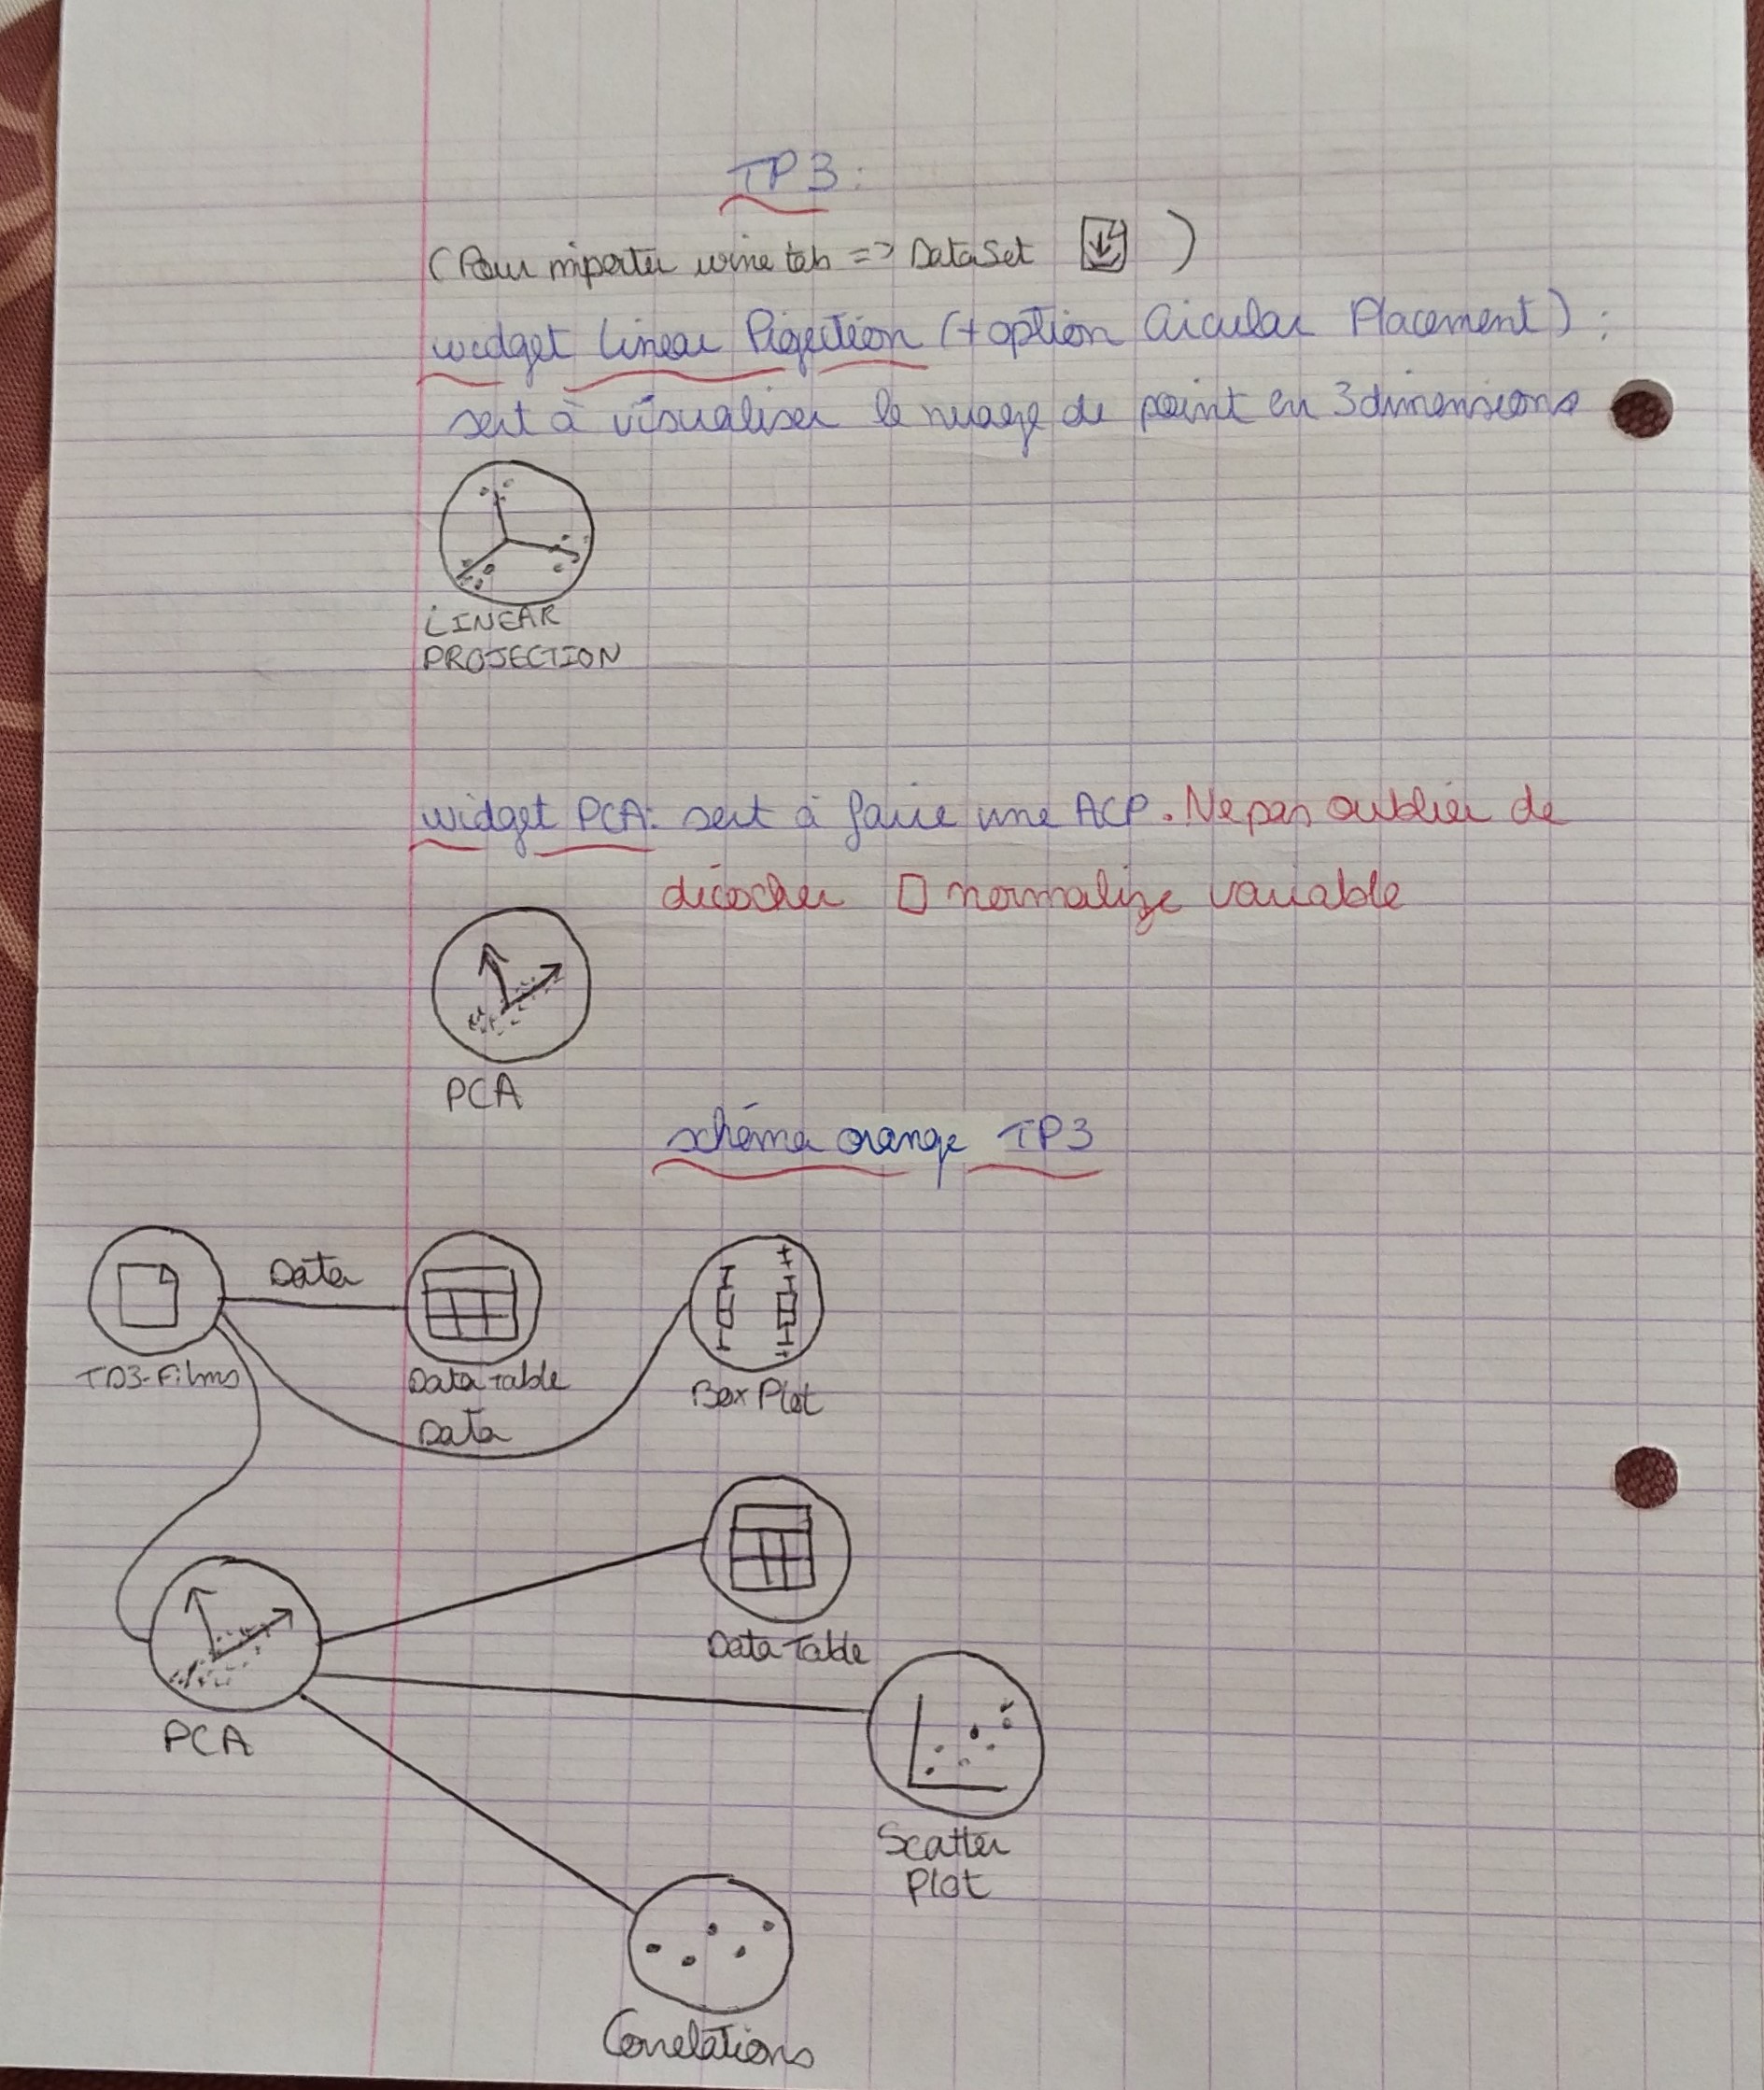 TP3:
(Pour importer wine tab => DataSet )
widget Linear Projection (+ option Circular Placement) :
sert à visualiser le nuage de point en 3 dimensions
LINEAR
PROJECTION
widget PCA: sert à faire une ACP. Ne pas oublier de
décocher □ normalize variable
PCA
schéma orange TP3
Data
TD3-Films
Data Table
Box Plot
Data
Data Table
PCA
Scatter
Plot
Correlations